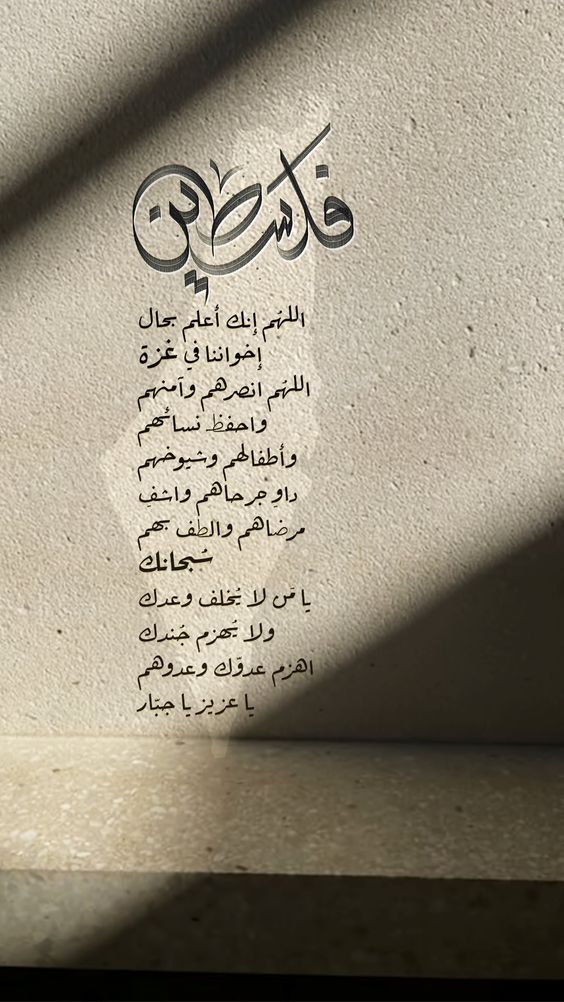 فلسطين
اللهم إنك أعلم بحال
إخواننا في غزة
اللهم انصرهم وآمنهم
واحفظ نسائهم
وأطفالهم وشيوخهم
داوِ جرحاهم واشفِ
مرضاهم والطف بهم
سُبحانك
يا مَن لا يُخلف وعدك
ولا يُهزم جُندك
اهزم عدوّك وعدوهم
يا عزيز يا جبّار